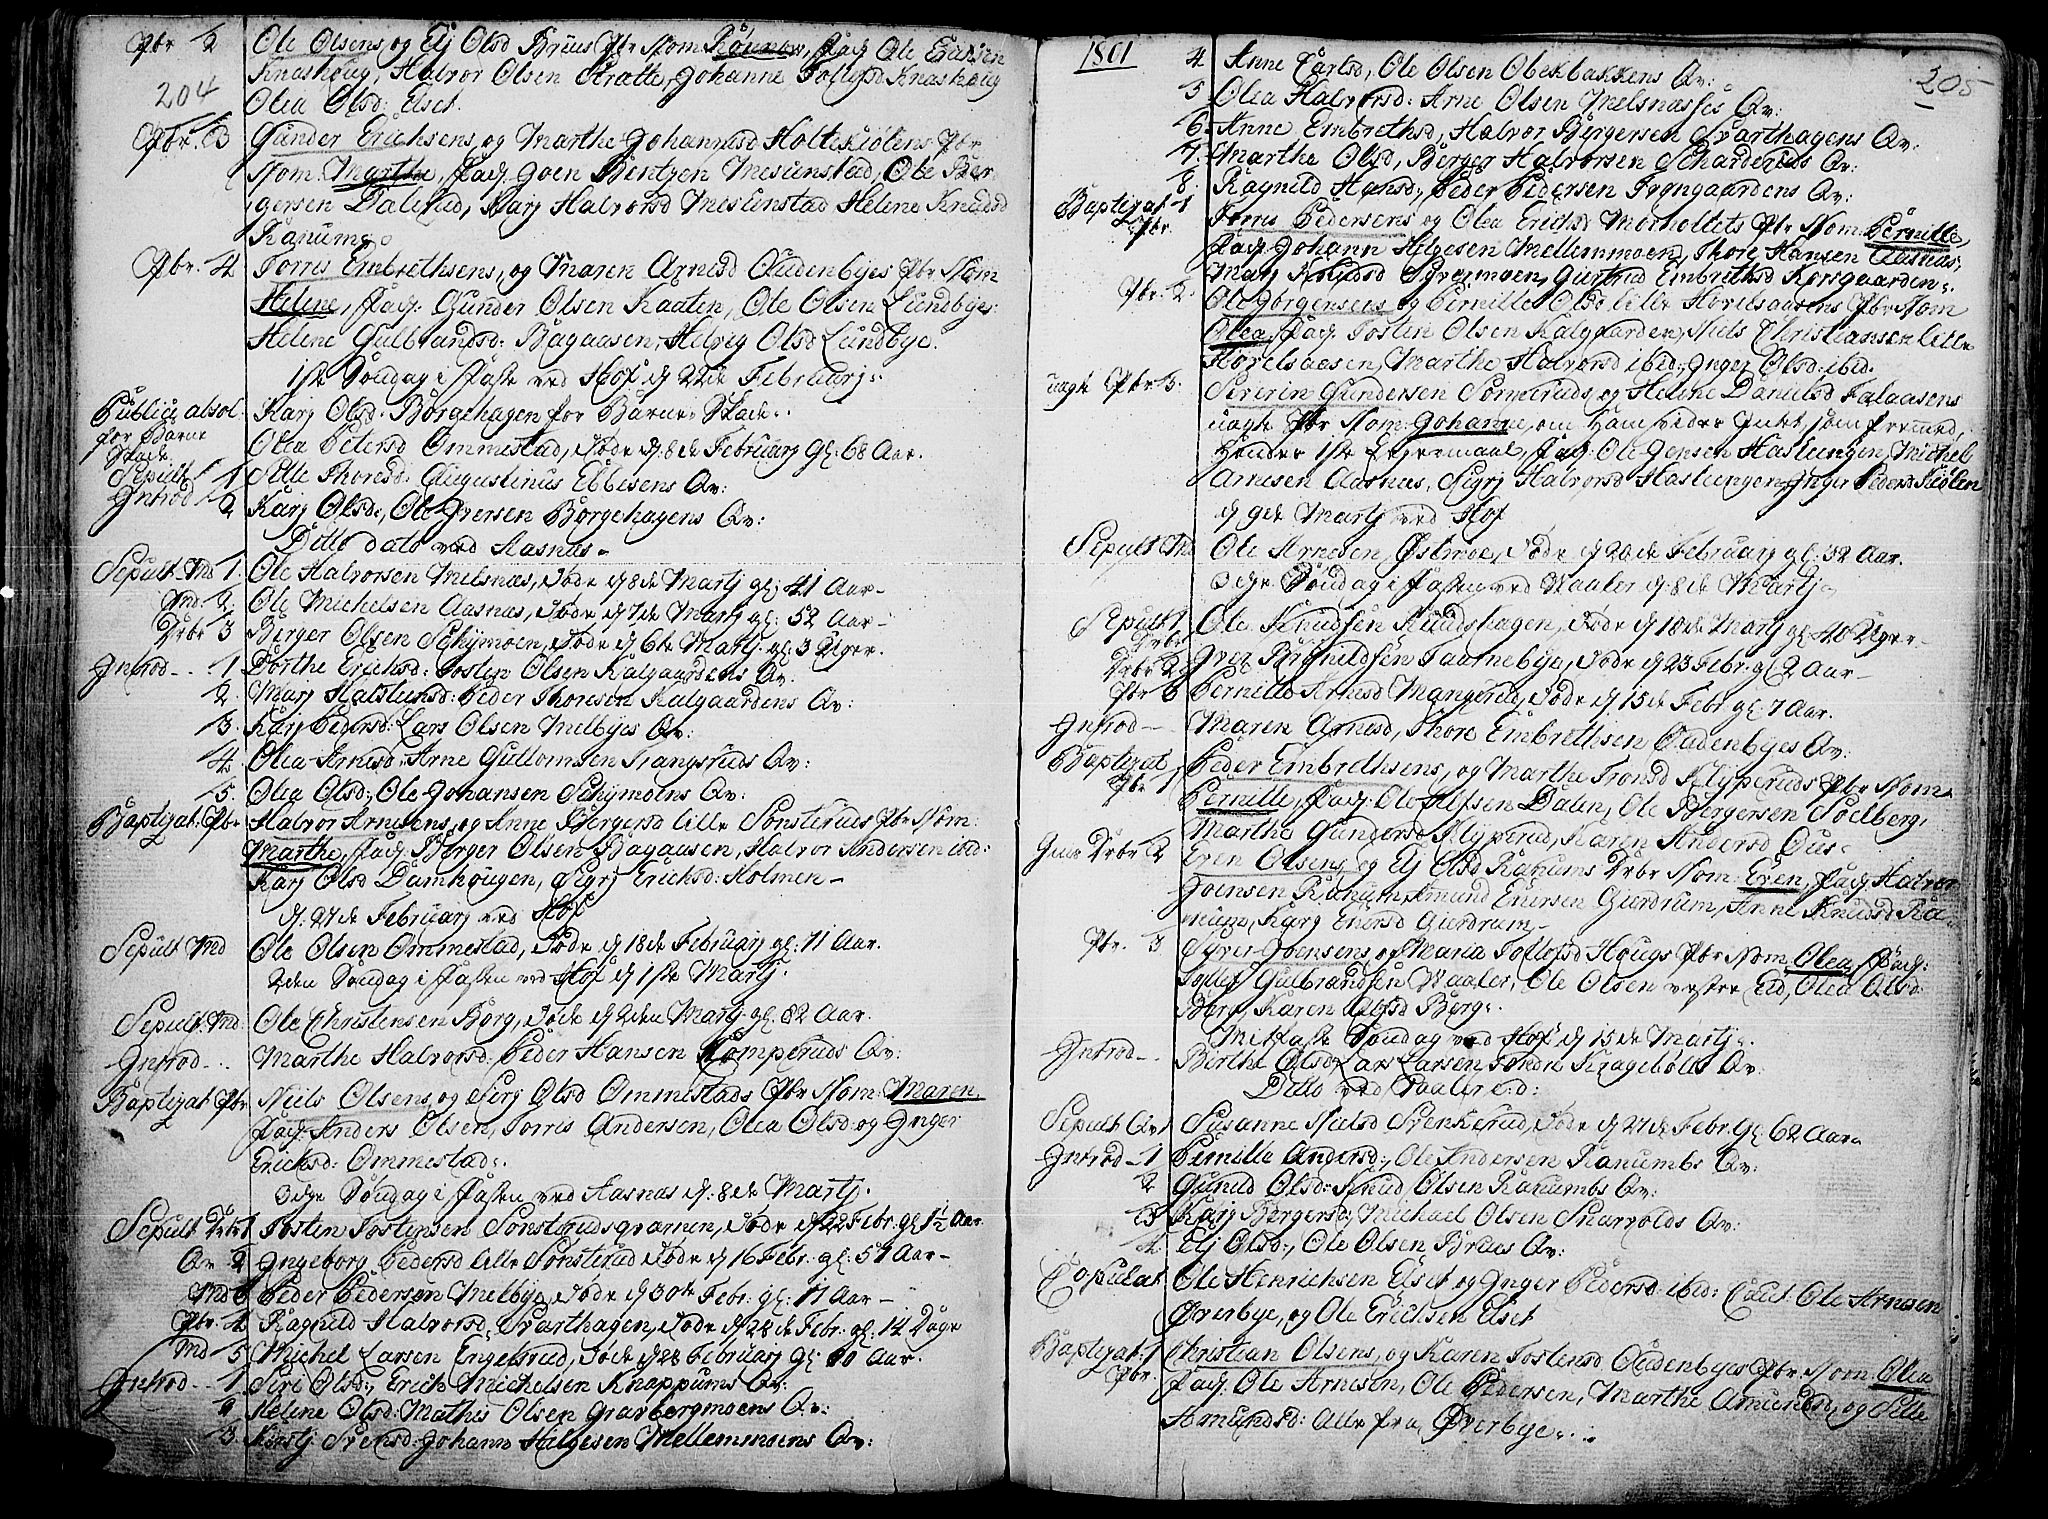 Pbr 2 Ole Olsens, og Elj Olsd Bruus Pbr Nom: Rønnow, Fad: Ole Ericsen
Knashoug, Halvor Olsen Kratte, Johanne Tollefsd Knashoug
204 Olea Olsd: Elset.
Pbr. 3 Gunder Erichsens, og Marthe Johannesd Holtekiølens Pbr
Nom: Marthe, Fad: Joen Bentzen Mesenstad, Ole Ber-
gersen Dalstad, Karj Halvorsd Mesenstad Helene Knudsd
Ranum
Pbr. 4 Torris Embrethsens, og Maren Arnesd Oudenbyes Pbr Nom
Helene, Fad: Gunder Olsen Kaaten, Ole Olsen Lundbye:
Helene Gulbrandsd: Bagaasen, Helvig Olsd Lundbye.
1ste Søndag i Faste ved Hof d 22de Februarj:
Publicq absol Karj Olsd: Borgehagen for Barne-Skade:
for Barne Olea Petersd Ommestad, døde d: 8de Februarj gl: 68 Aar.
Skade.
Sepult 1 Sille Thoresd: Augustinus Ebbesens Qv:
Introd 2 Karj Olsd:, Ole Iversen Børgehagens Qv:
Ditto dato ved Aasnæs
Sepult Md 1. Ole Halvorsen Melsnæs, døde d 8de Martj gl: 41 Aar
Md. 2. Ole Michelsen Aasnæs, døde d 7de Martj gl: 52 Aar
Drbr 3 Berger Olsen Schymoen, døde d 6te Martj gl: 3 Uger.
Introd 1 Dorthe Ericksd: Tosten Olsen Kalgaardens Qv.
2. Marj Halstensd: Peder Thoresen Kalgaardens Qv:
3. Karj Pedersd: Lars Olsen Melbyes Qv:
4 Olea Arnesd: Arne Guttormsen Trangsruds Qv:
5. Olea Olsd:, Ole Johansen Schymoens Qv:
Baptizat: Pbr Halvor Arnesens, og Anne Bergersd lille Sønsteruds Pbr Nom:
Marthe, Fad: Berger Olsen Bagaasen, Halvor Andersen ibd:
Karj Olsd Damhougen, Sigrj Ericksd: Holmen
d: 27de Februarj ved Hof
Sepult Md Ole Olsen Ommestad, døde d 18de Februarj gl: 71 Aar.
2den Søndag i Fasten ved Hof d 1ste Martj.
Sepult. Md: Ole Christensen Borg, døde d 2den Martj gl: 82 Aar.
Introd Marthe Halvorsd: Peder Hansen Komperuds Qv:
Baptizat Pbr Niels Olsens, og Sirj Olsd Ommestads Pbr Nom: Maren,
Fad: Anders Olsen, Torris Andersen, Olea Olsd og Inger
Ericksd: Ommestad.
3die Søndag i Fasten ved Aasnæs d: 8de Martj.
Sepult Drbr 1 Tosten Tostensen Sønsterudsgrænnen, døde d 22 Febr. gl 1½ Aar
Qv 2 Ingeborg Pedersd lille Sønsterud døde d 16 Febr: gl: 57 Aar
Md 3 Peder Pedersen Melbye, døde d 30te Febr: gl: 71 Aar
Pbr. 4 Ragnild Halvorsd: Svarthagen, døde d 28de Febr. gl: 14 Dage
Md 5 Michel Larsen Engelsrud, døde d 28 Februarj gl: 60 Aar.
Introd 1. Siri Olsd:, Erick Michelsen Knappums Qv:
2 Helene Olsd: Mathis Olsen Gravbergmoens Qv:
3. Kirstj Svensd: Johann Halgesen Mellemmoens Qv:
1801 4. Anne Carlsd, Ole Olsen Obekbakkens Qv: 205
5 Olea Halvorsd: Arne Olsen Melsnæsses Qv:
6. Anne Embrethsd, Halvor Bergersen Svarthagens Qv:
7. Marthe Olsd, Berger Halvorsen Scharderuds Qv:
8. Ragnild Hansd:, Peder Pedersen Tyengaardens Qv:
Baptizat 1 Torris Pedersens og Olea Ericksd Morholtets Pbr Nom: Pernille,
Pbr. Fad: Johann Helgesen Mellemmoen, Thore Hansen Aasnæs,
Marj Knudsd Syvermoen, Giertrud Embrethsd Korsgaarden.
Pbr: 2. Ole Jørgensens og Pernille Olsd lille Hovelsaasens Pbr Nom
Olea, Fad: Tosten Olsen Kalgaarden, Niels Christiansen lille
Hovelsaasen, Marthe Halvorsd ibid:, Inger Olsd: ibid.
uægte Pbr 3. Severin Gundersen Sormeruds, og Helene Danielsd Falaasens
uægte Pbr Nom: Johanne, om Ham vides Intet, som fremmed,
Hendes 1ste Leyermaal, Fad: Ole Jensen Hastungen, Michel
Arnesen Aasnæs, Sigrj Halvorsd Hastungen, Inger Pedersd Kiølen
d 9de Martj ved Hof
Sepult Md Ole Arnesen, Østmoe, døde d 20de Februarj gl: 32 Aar.
3die Søndag i Fasten ved Vaaler d: 8de Martj
Sepult 1 Ole Knudsen Kuudshagen, døde d 18de Martj gl: 40 Uger
Drbr
Drbr 2 Iver Brynildsen Taarnebye, døde d 23 Febr: gl: 2 Aar
Pbr 3 Pernille Arnesd Mangerud, døde d 15de Febr gl: 7 Aar.
Introd Maren Arnesd, Thore Embrethsen Oudenbyes Qv:
Baptizat Peder Embrethsens, og Marthe Tronsd Klyperuds Pbr Nom
Pbr 1 Pernille, Fad: Ole Alfsen Dalen, Ole Bergersen Soelberg,
Marthe Gundersd Klyperud, Karen Andersd Ous
Drbr 2 Even Olsens, og Elj Olsd Ranums Drbr Nom: Even, Fad: Halvor
Joensen Ranum, Amund Enersen Gierdrum, Anne Knudsd Ra-
num, Karj Enersd Gierdrum
Pbr. 3 Syver Joensens, og Maria Tollefsd Hougs Pbr Nom: Olea, Fad:
Tollef Gulbrandsen Vaaler, Ole Olsen vestre Eid, Olea Olsd
Berg, Karen Olsd Berg.
Mitfaste Søndag ved Hof d 15de Martj.
Introd Birthe Olsd, Lars Larsen Søndre Kragebøls Qv:
Ditto ved Vaaler e:d:
Sepult Qv: Susanne Nielsd Svenkerud, døde d 27de Febr. gl 62 Aar
Introd 1 Pernille Andersd:, Ole Andersen Ranumbs Qv:
2 Gunild Olsd: Knud Olsen Ranumbs Qv:
3 Karj Bergersd, Michael Olsen Snarvolds Qv:
4 Elj Olsd:, Ole Olsen Bruus Qv:
Copulat Ole Henrichsen Elset og Inger Pedersd: ibid: Caut: Ole Arnesen
Øverbye, og Ole Erichsen Elset
Baptizat 1 Christian Olsens, og Karen Tostensd Oudenbyes Pbr Nom: Olea
Pbr. Fad: Ole Arnesen, Ole Pedersen, Marthe Amundsd, og Sille
Amundsd: alle fra Øverbye